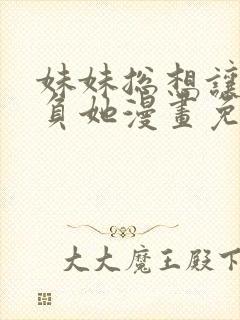 妹妹总想讓
負她漫畫免
大大魔王殿下